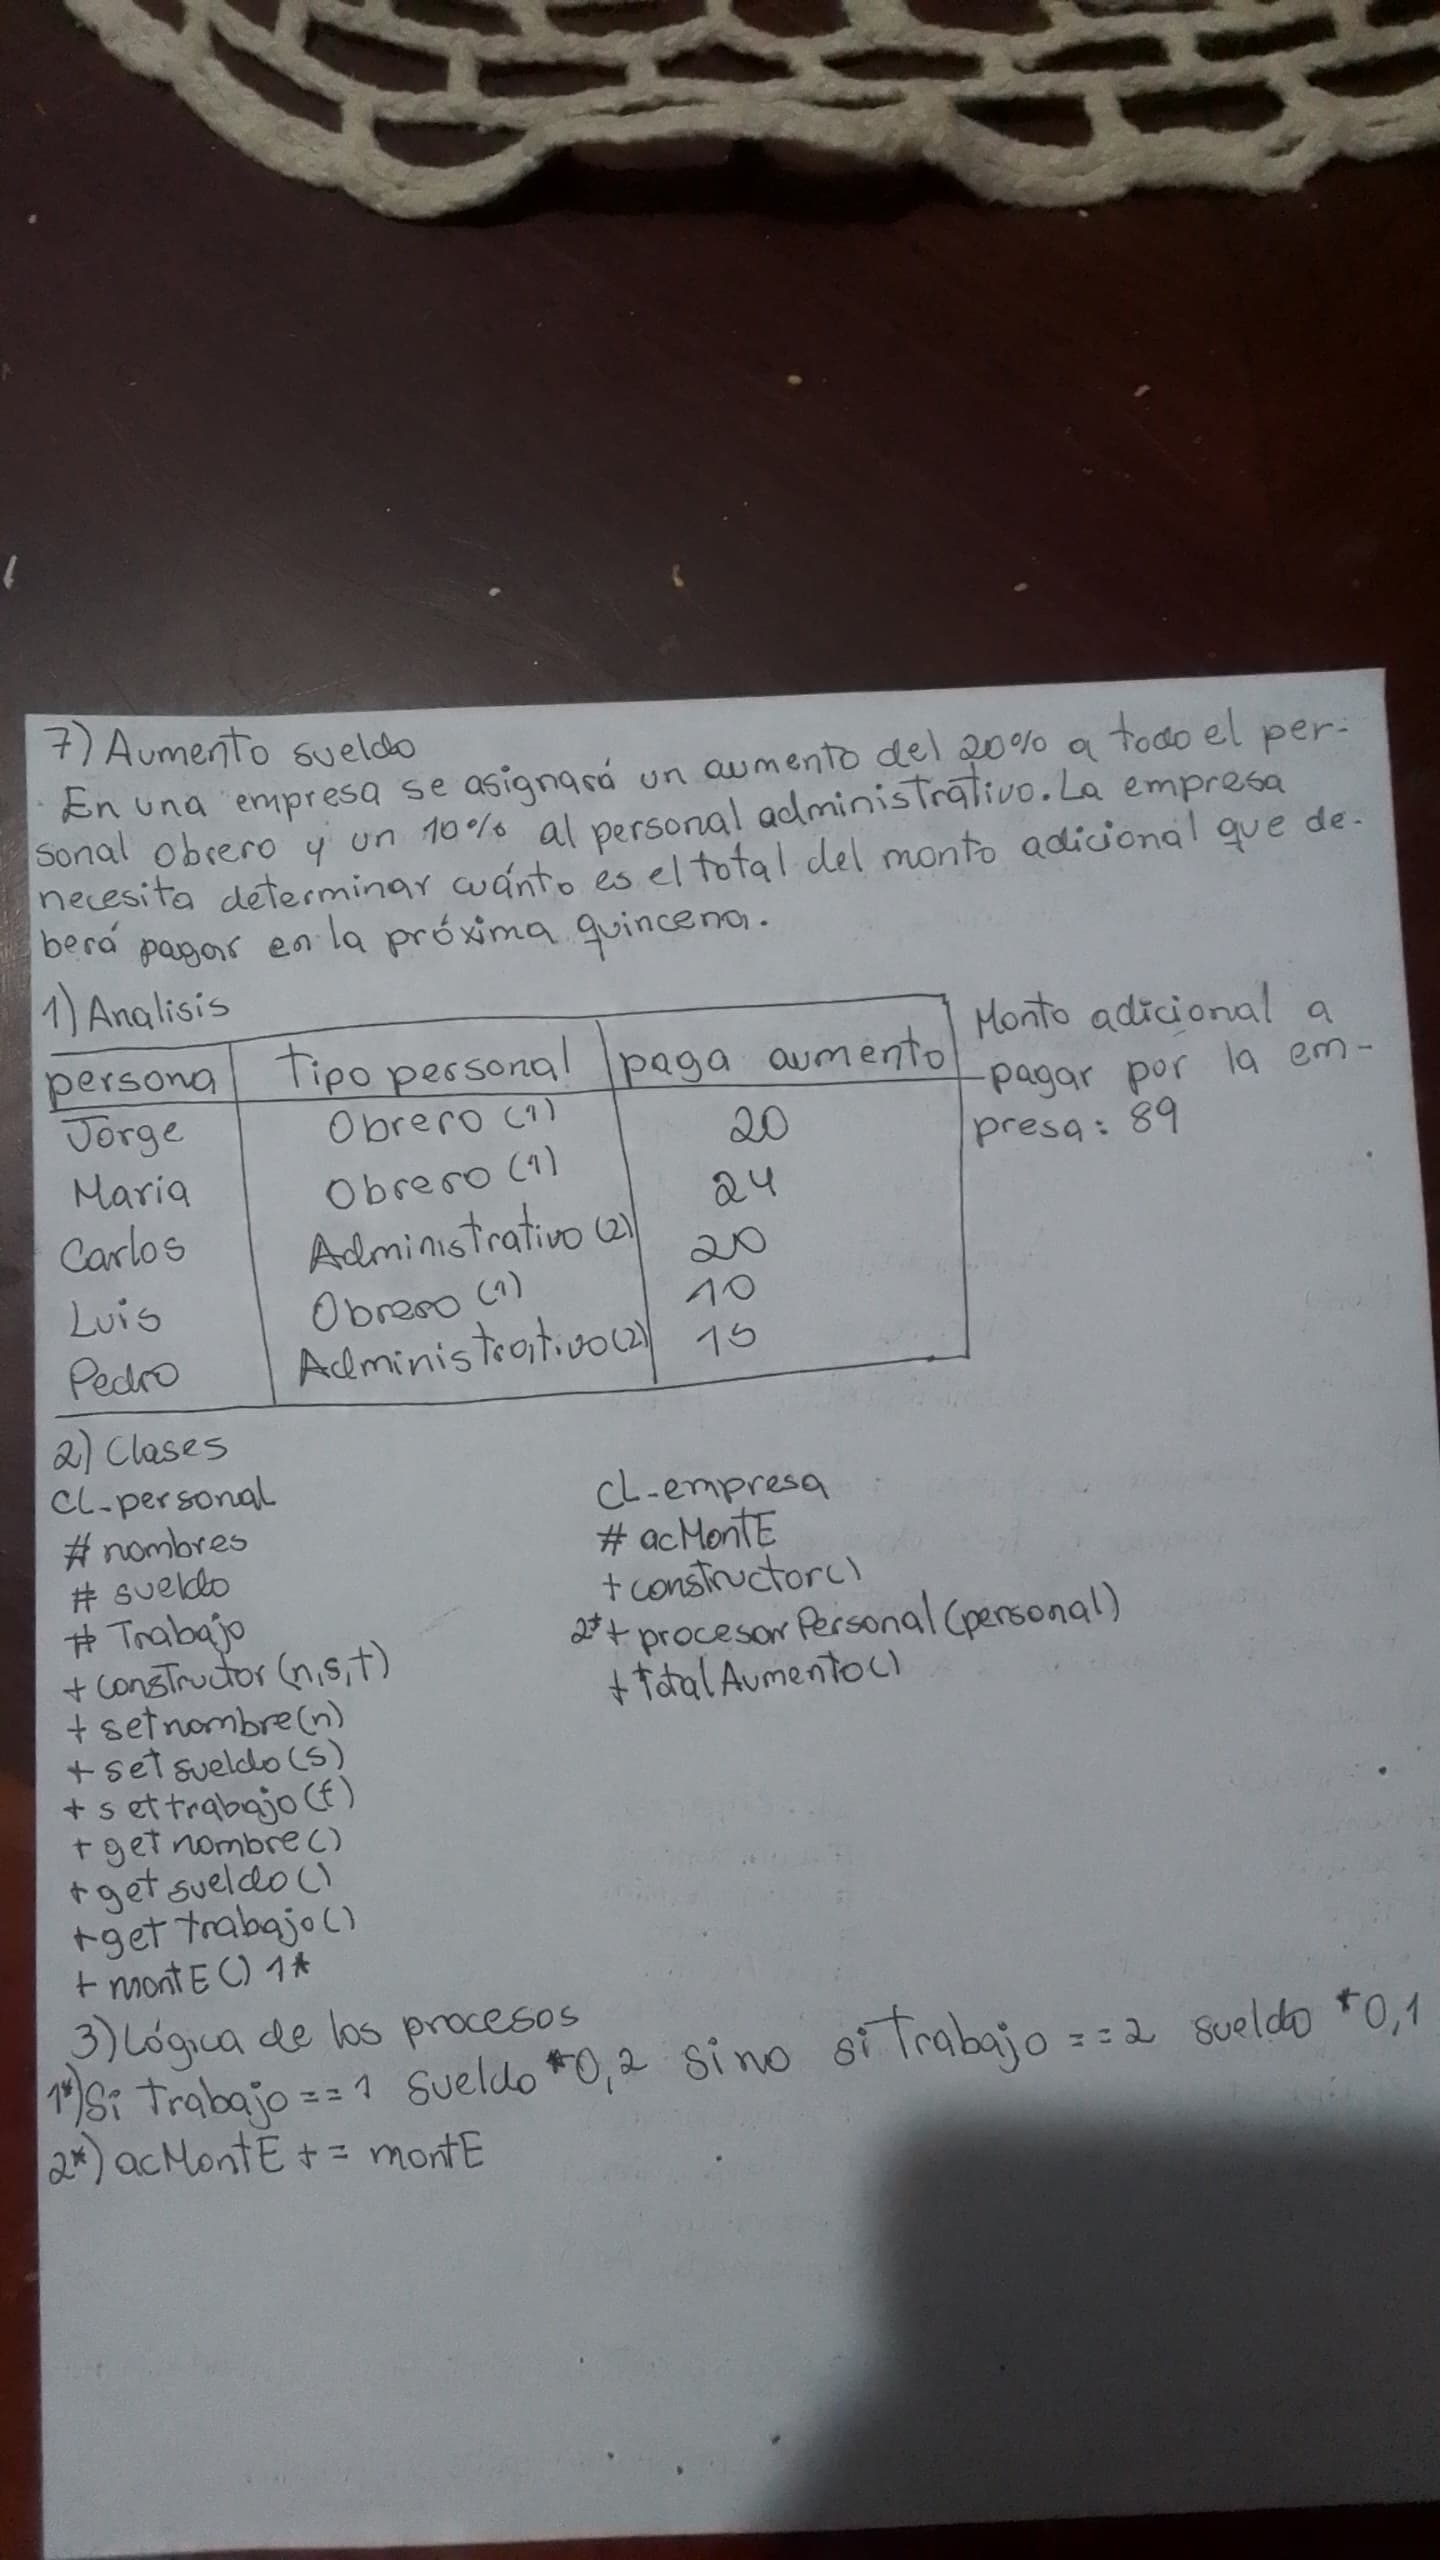 7) Aumento sueldo
En una empresa se asignará un aumento del 20% a todo el per-
sonal obrero y un 10% al personal administrativo. La empresa
necesita determinar cuánto es el total del monto adicional que de-
berá pagar en la próxima quincena.
1) Analisis
persona Tipo personal paga aumento
Jorge Obrero (1) 20
Maria Obrero (1) 24
Carlos Administrativo (2) 20
Luis Obrero (1) 10
Pedro Administrativo (2) 15
Monto adicional a
pagar por la em-
presa: 89
2) Clases
CL_personal
# nombres
# sueldo
# Trabajo
+ constructor (n,s,t)
+ setnombre(n)
+ set sueldo (s)
+ set trabajo (t)
+ get nombre ()
+ get sueldo ()
+ get trabajo ()
+ montE () 1*
CL_empresa
# acMontE
+ constructor ()
2* + procesarPersonal (personal)
+ totalAumento ()
3) Lógica de los procesos
1*) Si Trabajo == 1 sueldo *0,2 sino si Trabajo == 2 sueldo *0,1
2*) acMontE + = montE